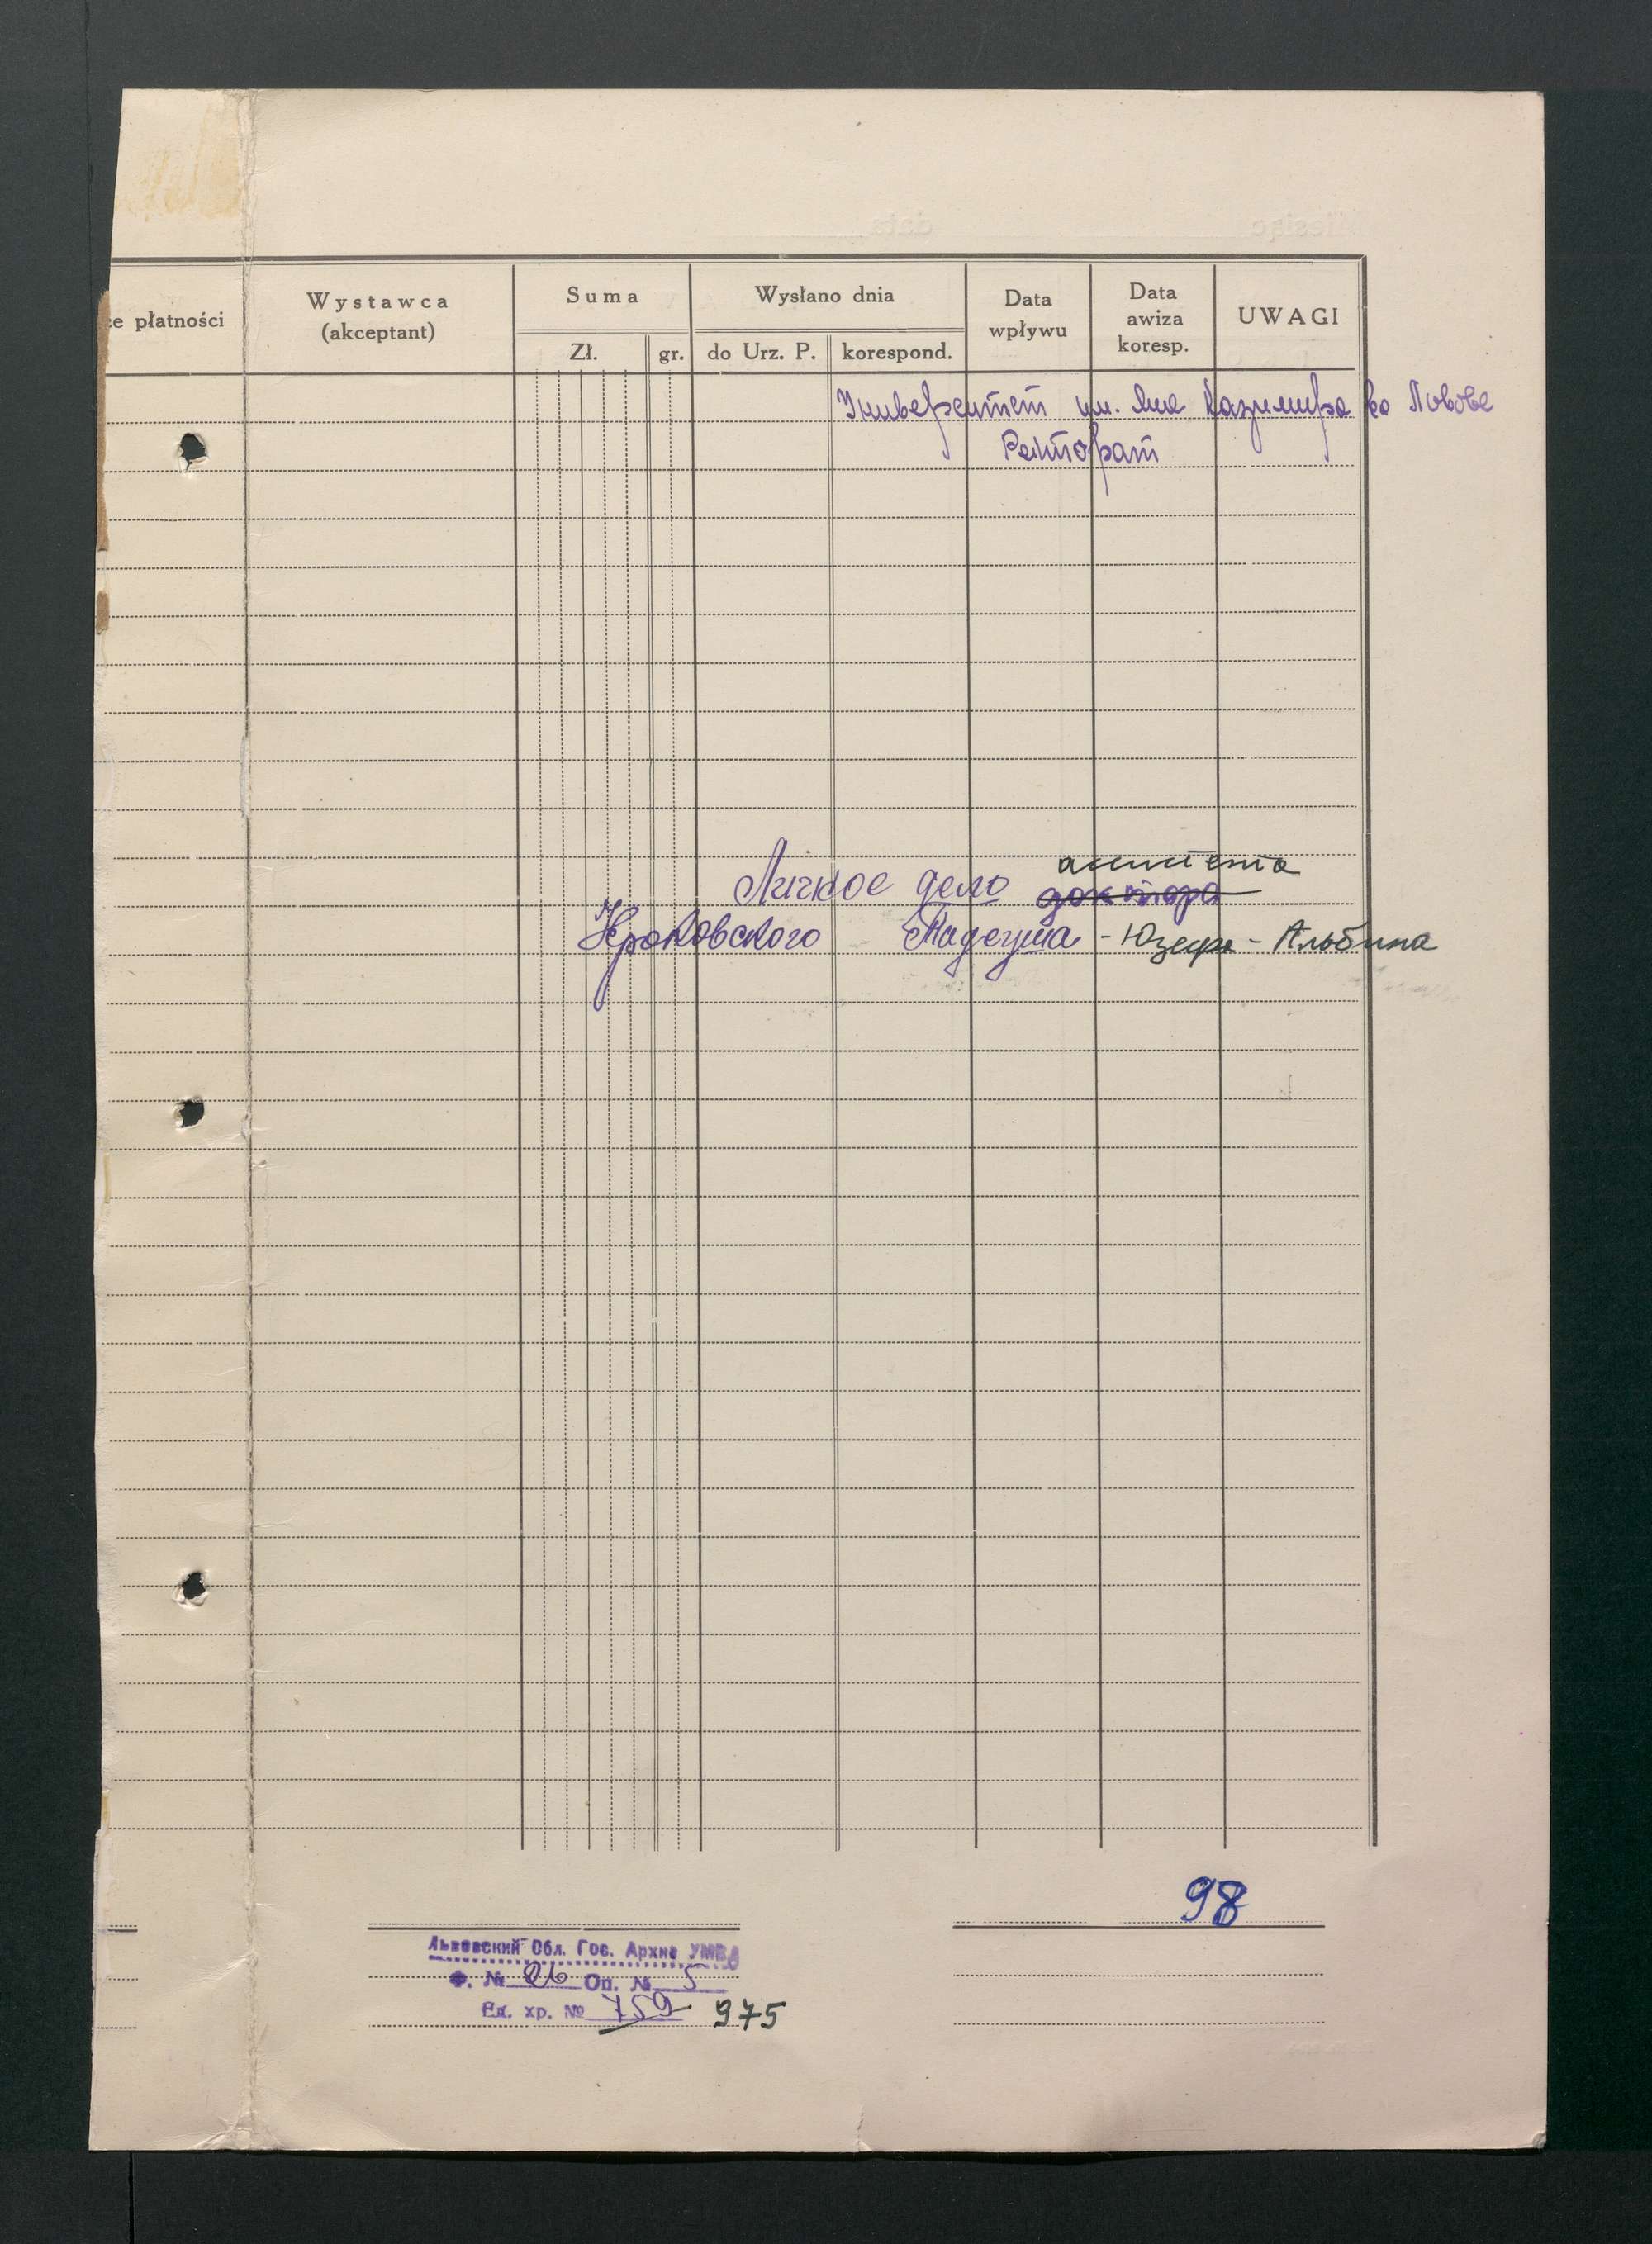 ce płatności
Wystawca
(akceptant)
Suma
Zł.
gr.
Wysłano dnia
do Urz. P.
korespond.
Data
wpływu
Data
awiza
koresp.
UWAGI
Университет им. Яна Казимира во Львове
Ректорат
ассистента
Личное дело доктора
Кроковского Тадеуша - Юзефа - Альбина
98
Львовский Обл. Гос. Архив УМВД
Ф. № 26 Оп. № 5
Ед. хр. № 759 975